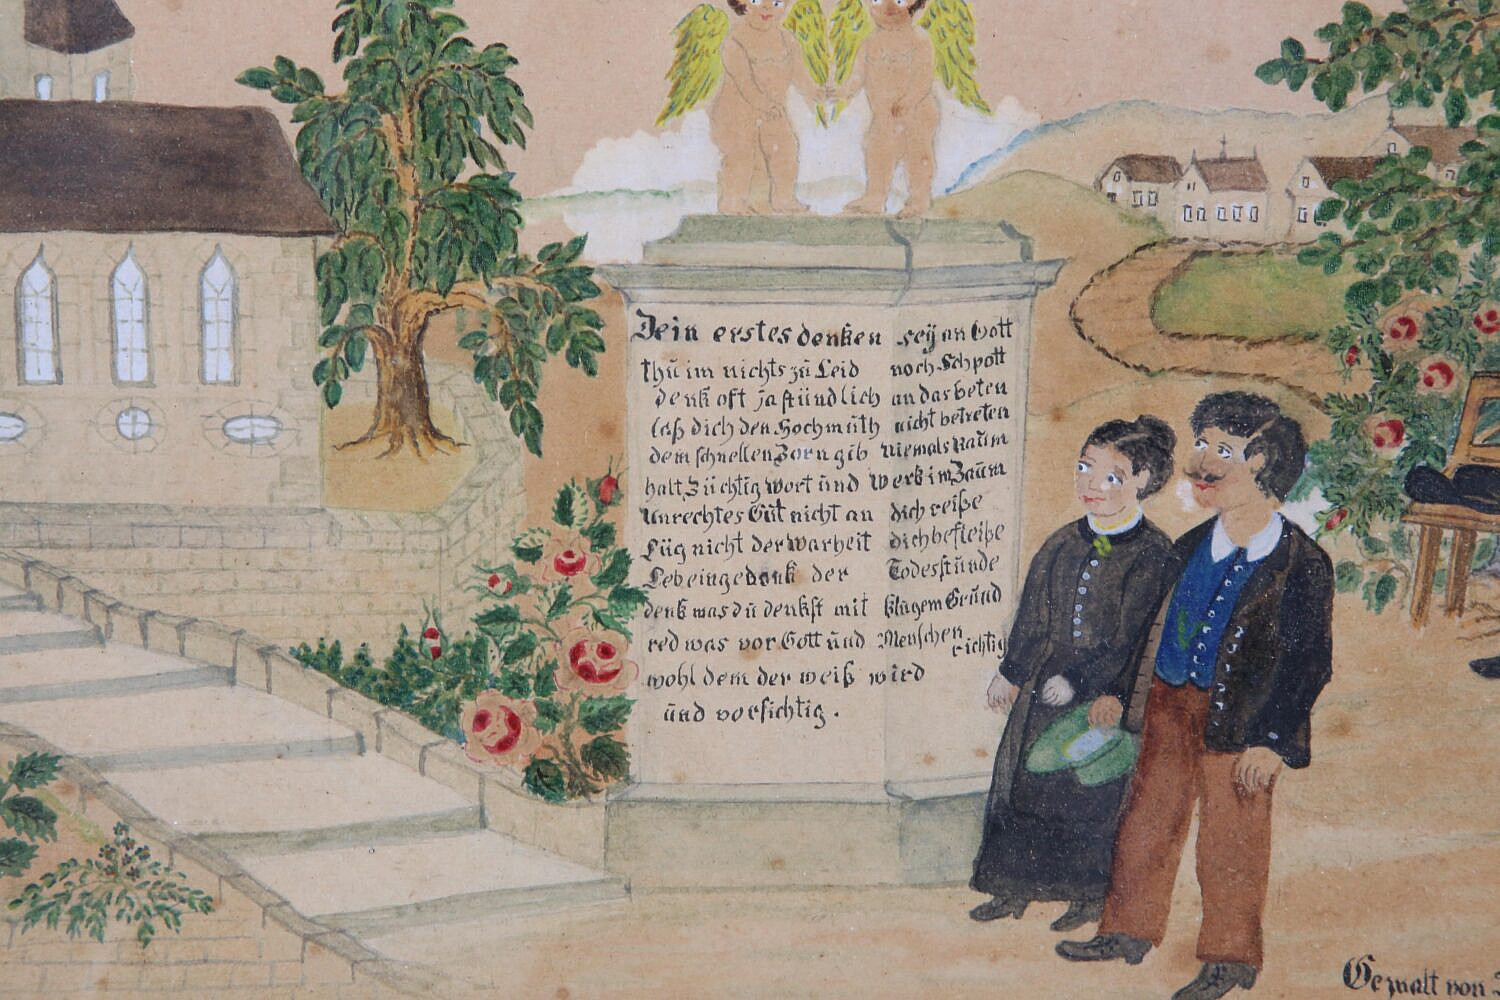 Dein erstes denken seÿ an Gott
thū im nichts zū Leid noch Schpott
denk oft ja stündlich an das beten
laß dich den Hochmūth nicht betreten
dem schnellen Zorn gib niemals Raūm
halt Züchtig wort ūnd werk im Zaūm
Unrechtes Gūt nicht an dich reiße
Lüg nicht der warheit dich befleiße
Leb eingedenk der Todesstūnde
denk was dū denkst mit klūgem Grūnd
red was vor Gott ūnd Menschen richtig
wohl dem der weiß wird
ūnd vorsichtig .
Gemalt von